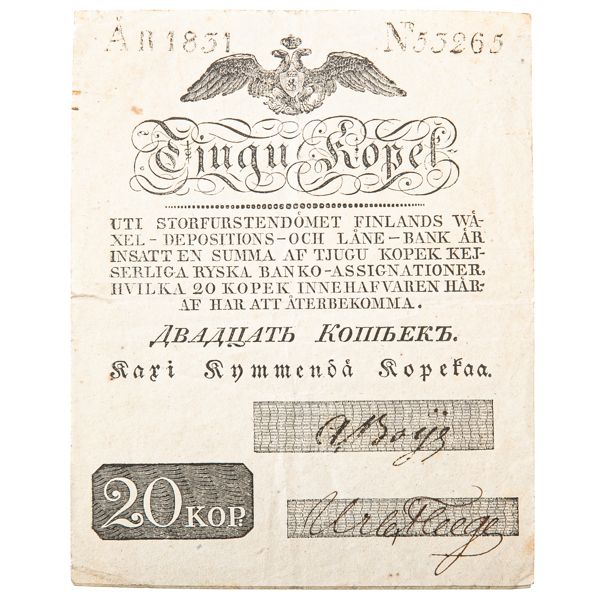 ÅR 1831 No 53265
Tjugu Kopek
UTI STORFURSTENDÖMET FINLANDS WÄ-
XEL-DEPOSITIONS-OCH LÅNE-BANK ÄR
INSATT EN SUMMA AF TJUGU KOPEK KEJ-
SERLIGA RYSKA BANKO-ASSIGNATIONER,
HVILKA 20 KOPEK INNEHAFVAREN HÄR-
AF HAR ATT ÅTERBEKOMMA.
ДВАДЦАТЬ КОПѢЕКЪ.
Kaxi Kymmendä Kopekaa.
20 KOP.